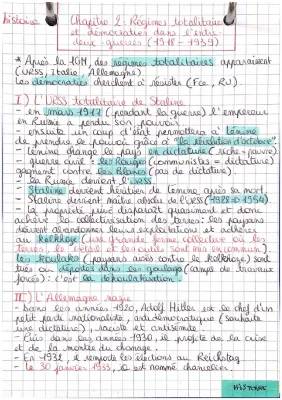 histoire
Chapitre 2: Régimes totalitaires
et démocraties dans l'entre-
deux-guerres (1918-1939)
* Après la 1GM, des régimes totalitaires apparaissent
(URSS, Italie, Allemagne)
Les démocraties cherchent à résister (Fce, RU)
I) L'URSS totalitaire de Staline
- en mars 1917 (pendant la guerre) l'empereur
en Russie a perdu son pouvoir
- ensuite un coup d'état permettra à Lénine
de prendre le pouvoir grâce à "la révolution d'octobre"
- Lénine change le pays en dictature (riche → pauvre)
- guerre civile: les Rouges (communistes = dictature)
gagnent contre les Blancs (pas de dictature).
- la Russie devient l'URSS.
- Staline devient héritier de Lénine après sa mort.
- Staline devient maître absolu de l'URSS (1928 → 1954)
- la propriété privé disparaît quasiment et donc
achève la collectivisation des terres: les paysans
doivent abandonner leurs exploitations et adhérer
au kolkhoze (une grande ferme collective où les
terres, le bétail et les outils sont mis en commun).
les koulaks (paysans aisés contre le kolkhoze) sont
tués ou déportés dans les goulags (camps de travaux
forcés): c'est la dékoulakisation.
II) L'Allemagne nazie
- Dans les années 1920, Adolf Hitler est le chef d'un
petit parti nationaliste, antidémocratique (souhaite
une dictature), raciste et antisémite.
- Puis dans les années 1930, il profite de la crise
et de la montée du chômage.
- En 1932, il remporte les élections au Reichstag
- Le 30 janvier 1933, il est nommé chancelier.